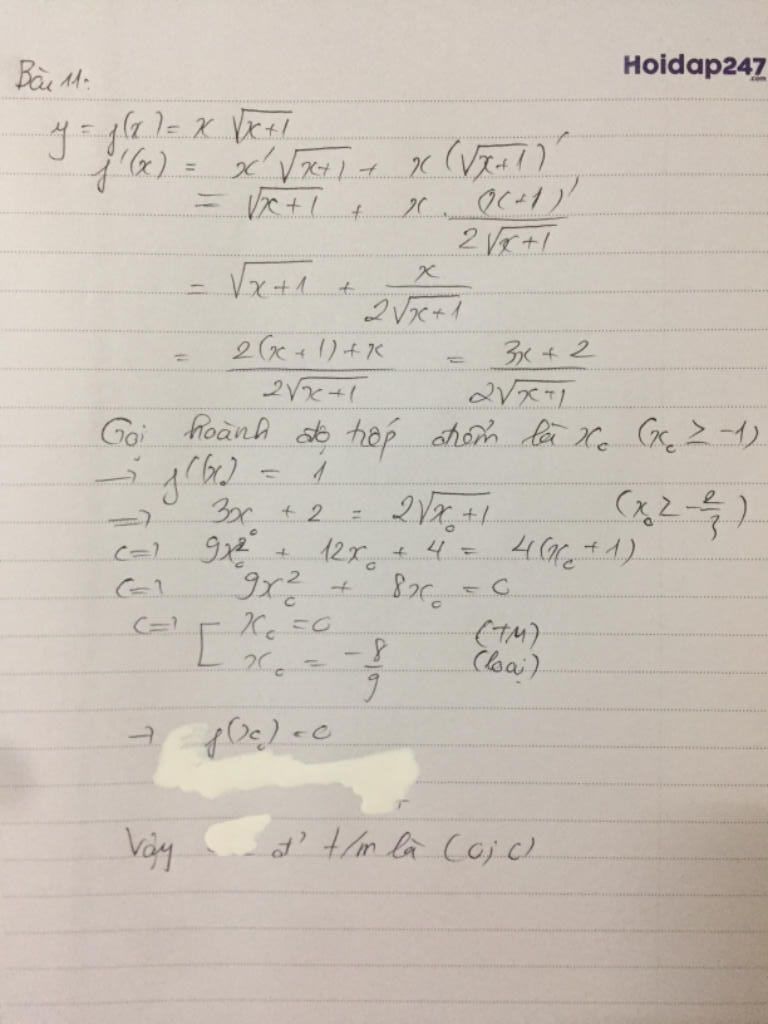 Hoidap247
.com
Bài 11:
y = f(x) = x √(x+1)
f'(x) = x'√(x+1) + x(√(x+1))'
= √(x+1) + x . (x+1)'/(2√(x+1))
= √(x+1) + x/(2√(x+1))
= (2(x+1)+x)/(2√(x+1)) = (3x+2)/(2√(x+1))
Gọi hoành độ tiếp điểm là x₀ (x₀ ≥ -1)
→ f'(x₀) = 1
=> 3x₀ + 2 = 2√(x₀+1) (x₀ ≥ -2/3)
<=> 9x₀² + 12x₀ + 4 = 4(x₀+1)
<=> 9x₀² + 8x₀ = 0
<=> [ x₀ = 0 (TM)
x₀ = -8/9 (loại)
→ f(x₀) = 0
Vậy đ' t/m là (0; 0)